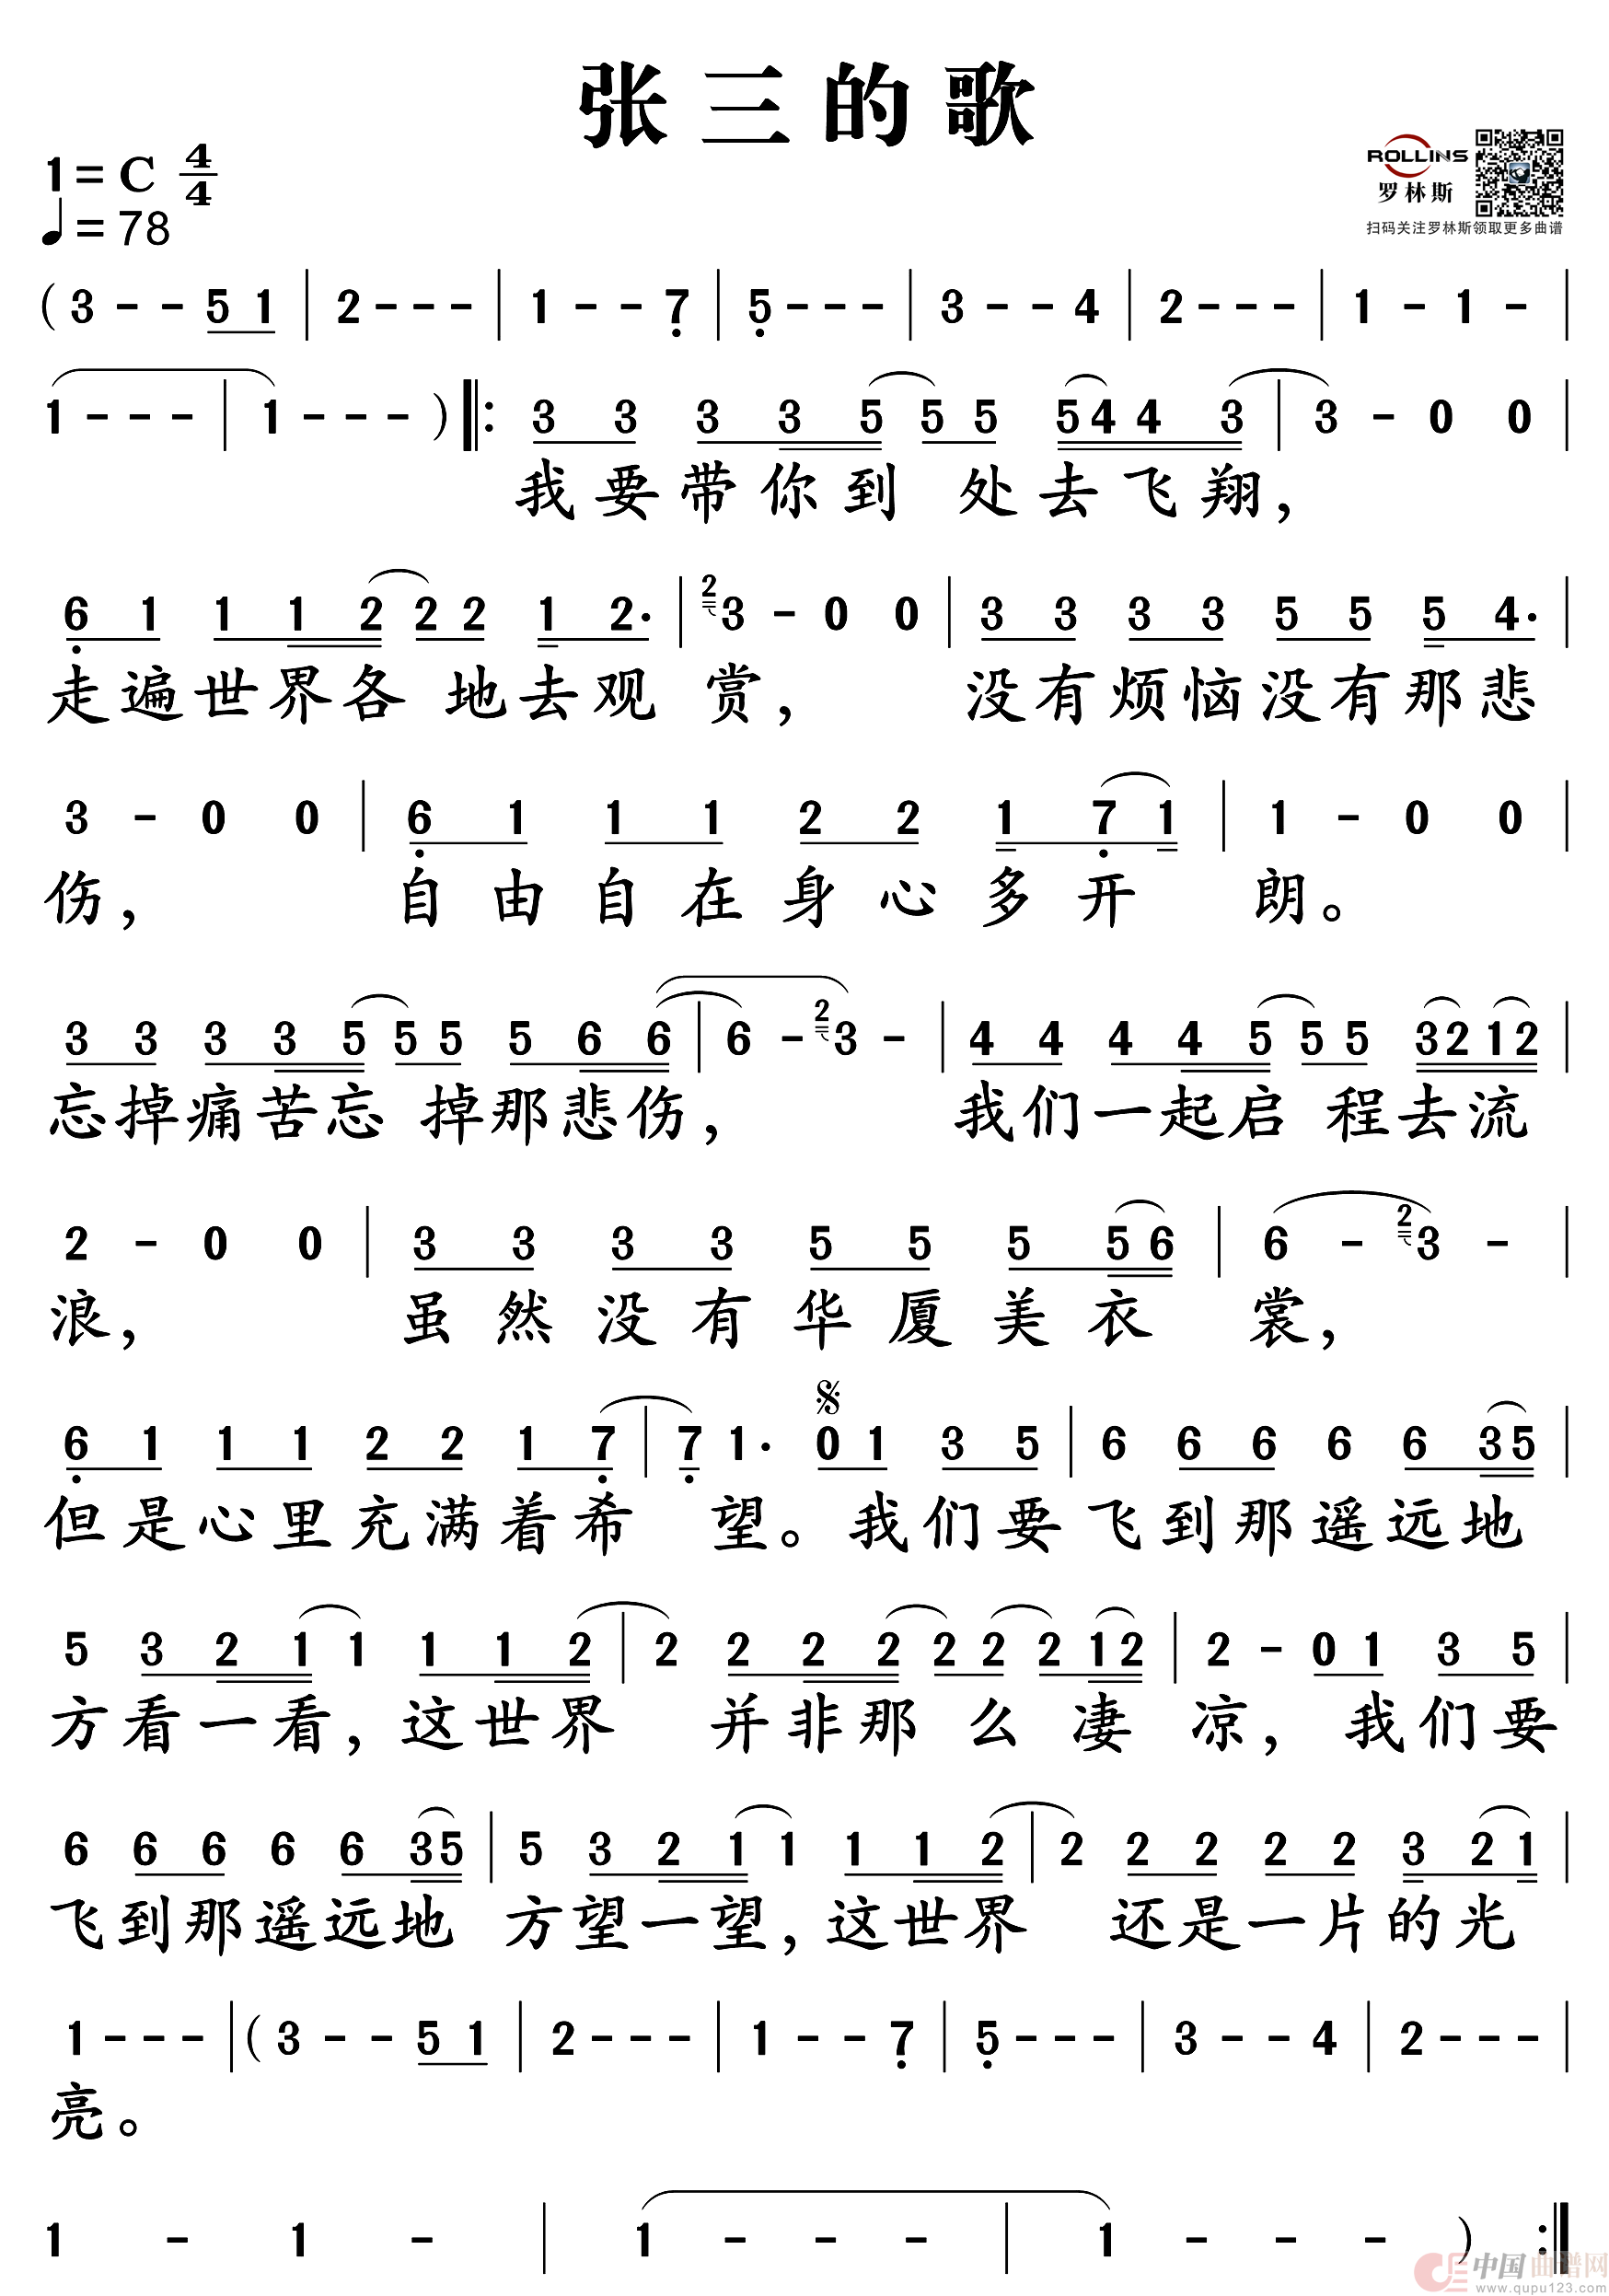 张三的歌
1=C 4/4
♩=78
ROLLINS
罗林斯
扫码关注罗林斯领取更多曲谱
(3 - - 5 1 | 2 - - - | 1 - - 7̣ | 5̣ - - - | 3 - - 4 | 2 - - - | 1 - 1 - |
1 - - - | 1 - - - ) ‖: 3 3 3 3 5 5 5 5 4 4 3 | 3 - 0 0 |
我要带你到 处去飞翔，
6̣ 1 1 1 2 2 2 1 2. | 2 3 - 0 0 | 3 3 3 3 5 5 5 4. |
走遍世界各 地去观 赏， 没有烦恼没有那悲
3 - 0 0 | 6̣ 1 1 1 2 2 1 7̣ 1 | 1 - 0 0 |
伤， 自由自在身心多开 朗。
3 3 3 3 5 5 5 5 6 6 | 6 - 2 3 - | 4 4 4 4 5 5 5 3 2 1 2 |
忘掉痛苦忘 掉那悲伤， 我们一起启 程去流
2 - 0 0 | 3 3 3 3 5 5 5 5 6 | 6 - 2 3 - |
浪， 虽然没有华厦美衣 裳，
𝄋
6̣ 1 1 1 2 2 1 7̣ | 7̣ 1. 0 1 3 5 | 6 6 6 6 6 3 5 |
但是心里充满着希 望。我们要飞到那遥远地
5 3 2 1 1 1 1 2 | 2 2 2 2 2 2 2 1 2 | 2 - 0 1 3 5 |
方看一看，这世界 并非那么凄 凉，我们要
6 6 6 6 6 3 5 | 5 3 2 1 1 1 1 2 | 2 2 2 2 2 3 2 1 |
飞到那遥远地 方望一望，这世界 还是一片的光
1 - - - | (3 - - 5 1 | 2 - - - | 1 - - 7̣ | 5̣ - - - | 3 - - 4 | 2 - - - |
亮。
1 - 1 - | 1 - - - | 1 - - - ) :‖
中国曲谱网
www.qupu123.com